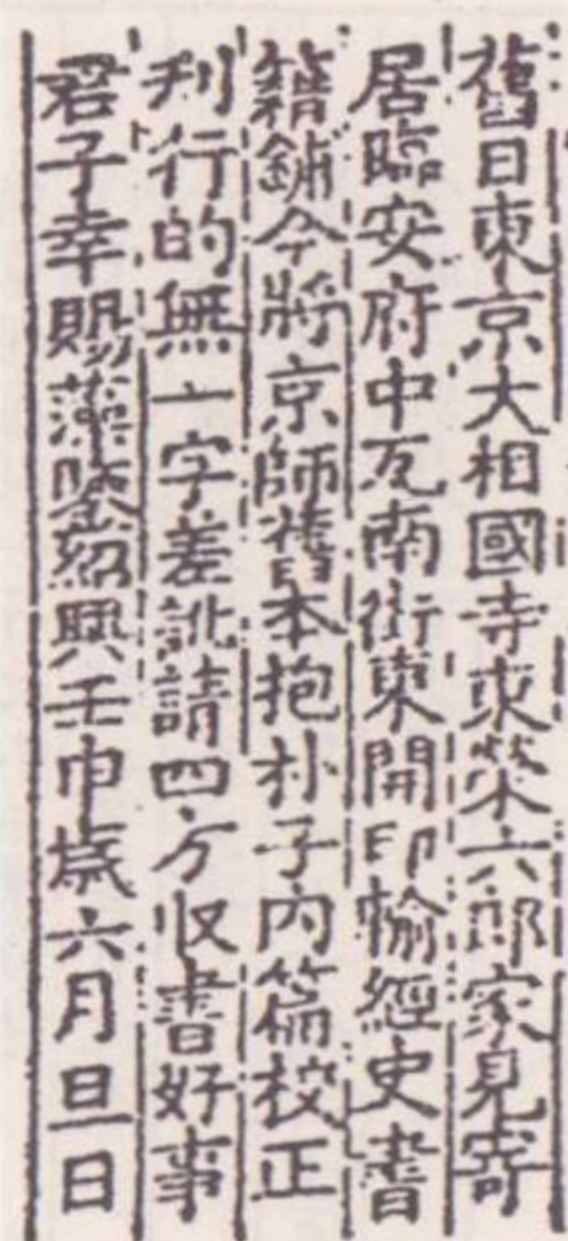 舊日東京大相國寺東榮六郎家見寄
居臨安府中瓦南街東開印輸經史書
籍鋪今將京師舊本抱朴子內篇校正
刊行的無一字差訛請四方收書好事
君子幸賜藻鑒紹興壬申歲六月旦日